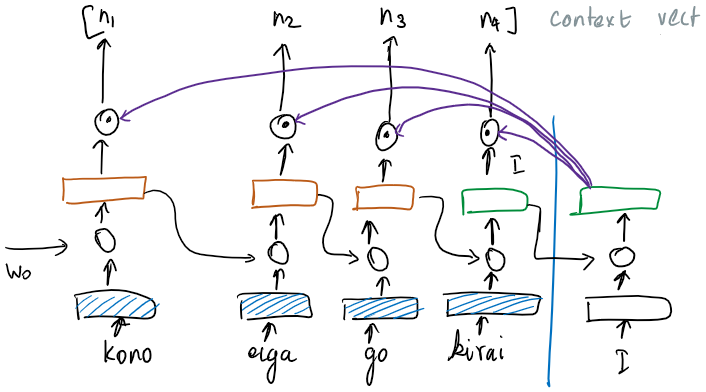 [n1 n2 n3 n4] context vect
I
Wo
kono eiga go kirai I